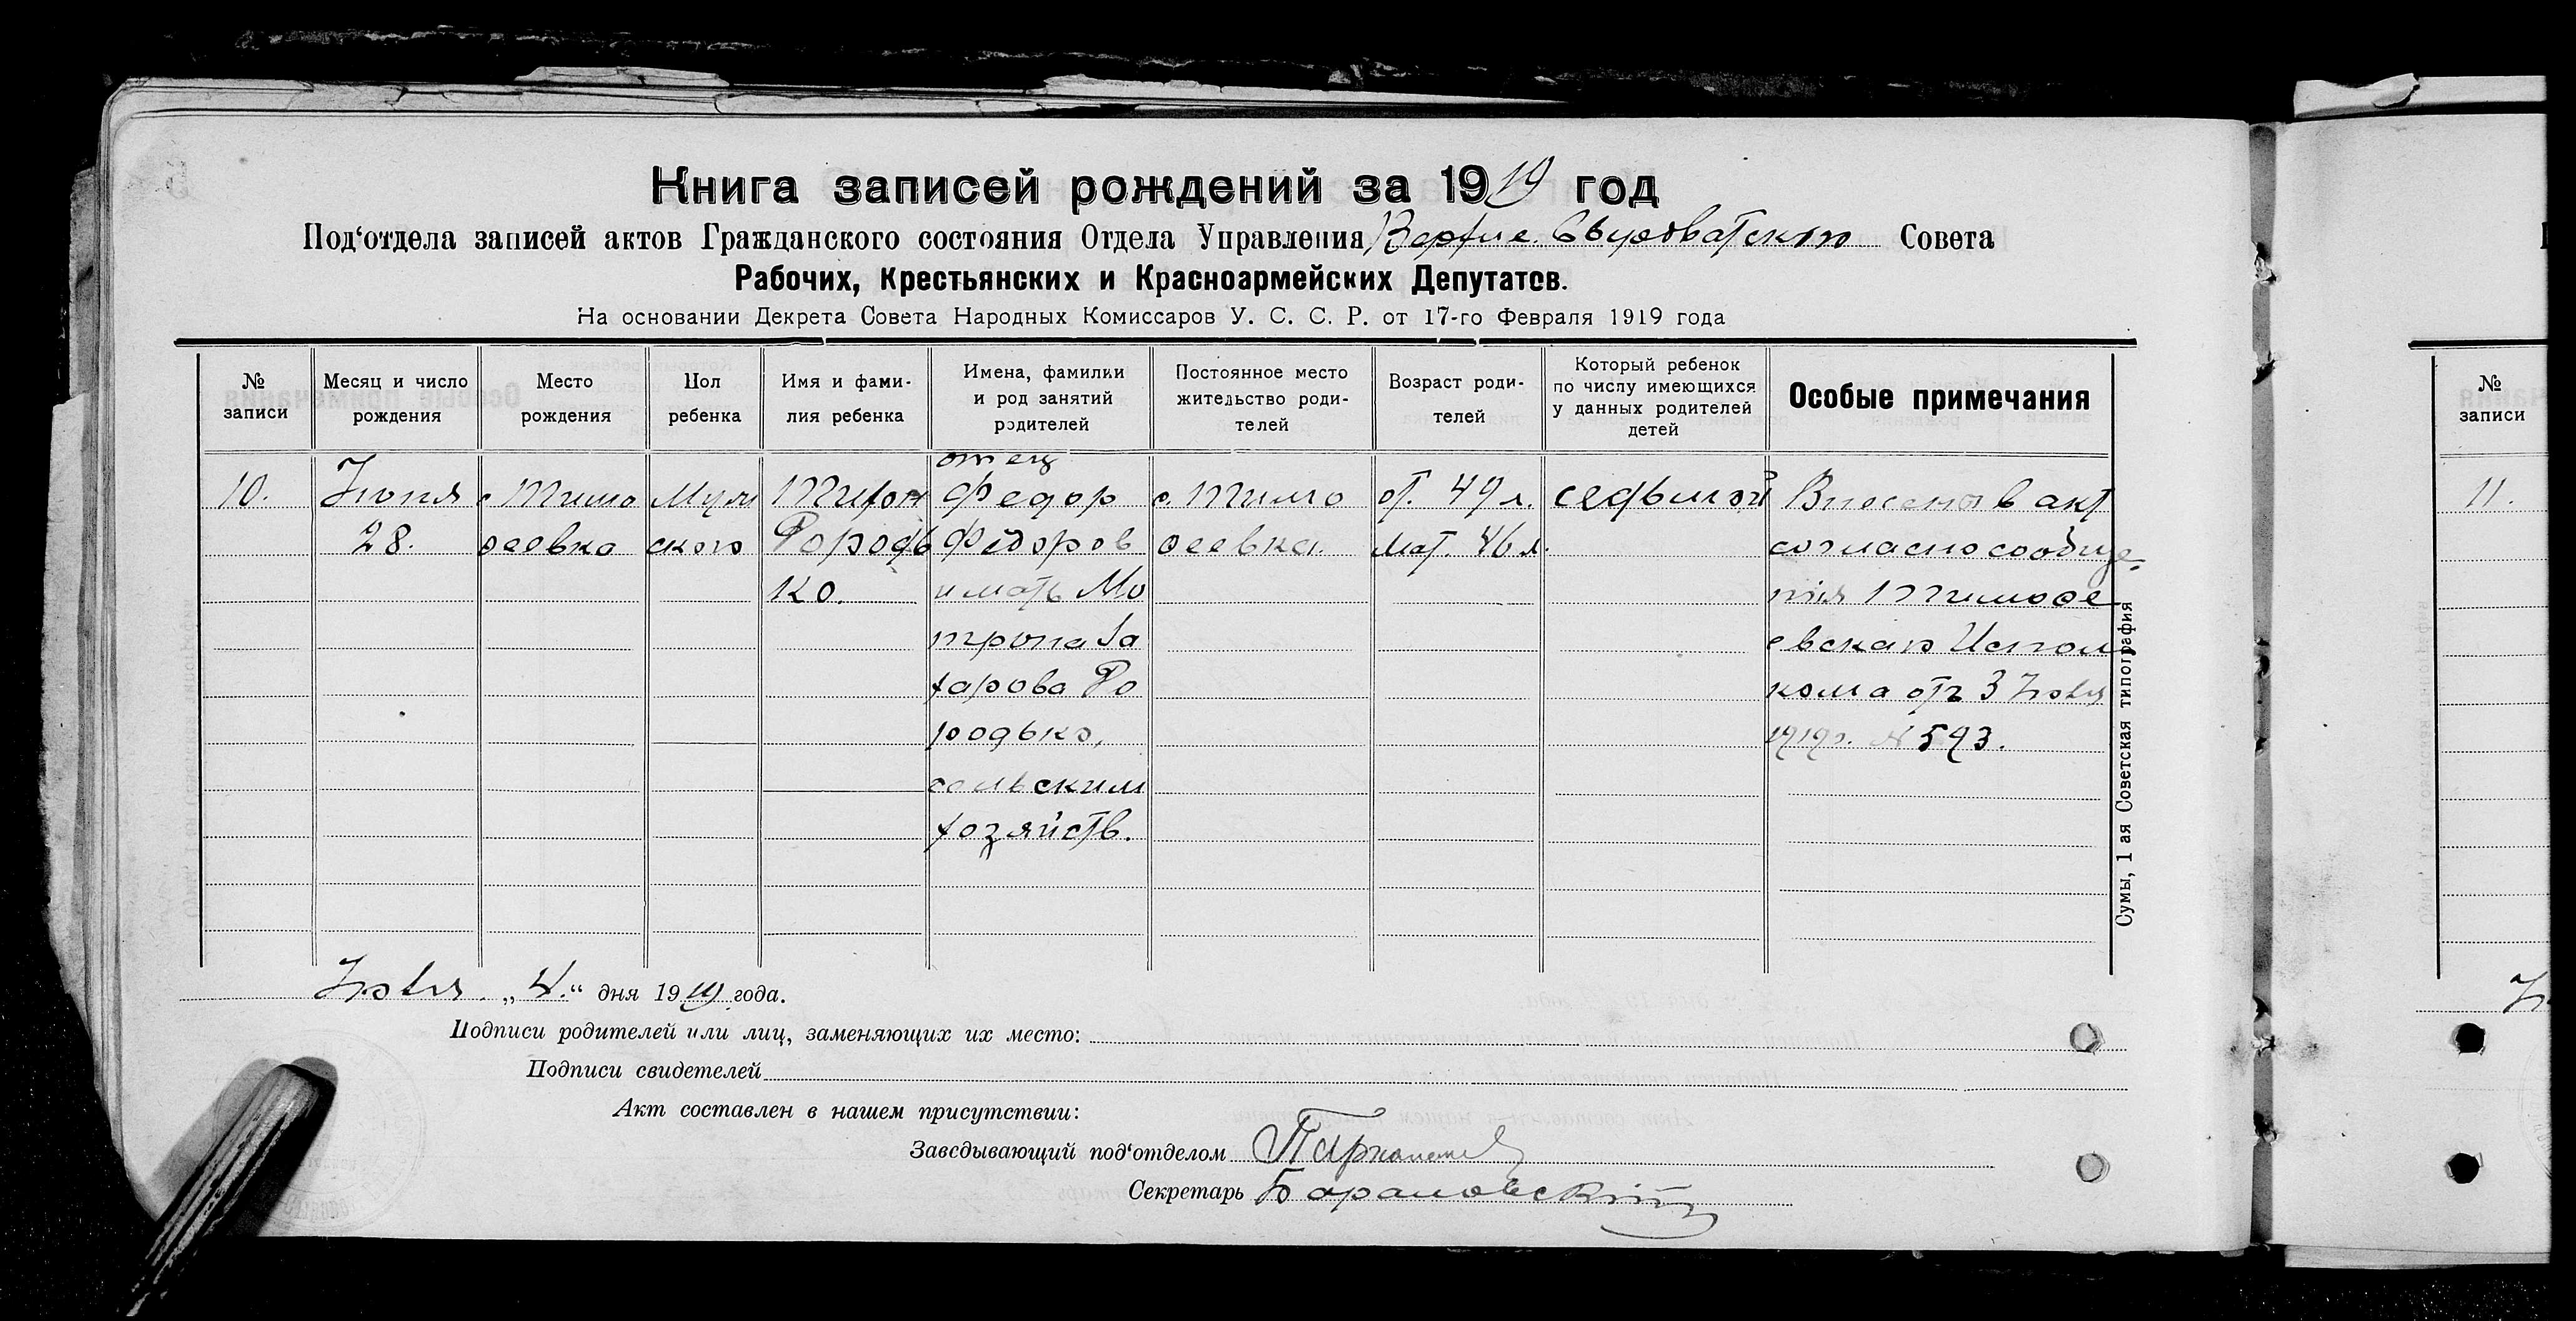 Книга записей рождений за 1919 год
Под‘отдела записей актов Гражданского состояния Отдела Управления Верхне. Сыроватского Совета
Рабочих, Крестьянских и Красноармейских Депутатов.
На основании Декрета Совета Народных Комиссаров У. С. С. Р. от 17-го Февраля 1919 года
№ записи
Месяц и число рождения
Место рождения
Пол ребенка
Имя и фами-
лия ребенка
Имена, фамилии
и род занятий
родителей
Постоянное место
жительство роди-
телей
Возраст роди-
телей
Который ребенок
по числу имеющихся
у данных родителей
детей
Особые примечания
10.
Июня
28.
с. Тимо
өеевка
Муж
ского
Тихон
Городь
ко.
отец
Федор
Федоров
и мать Ма
трона За
харова Го
родько,
сельским
хозяйств.
с. Тимо
өеевка.
от. 49 л.
мат. 46 л.
седьмой
Внесено в акт
согласно сообще-
ния Тимоөе
евскаго Испол
кома отъ 3 Июля
1919г. № 593.
Сумы, 1 ая Советская типография
Июля „4.“ дня 1919 года.
Подписи родителей или лиц, заменяющих их место:
Подписи свидетелей
Акт составлен в нашем присутствии:
Заведывающий под‘отделом
Секретарь Барановский
№
записи
11.